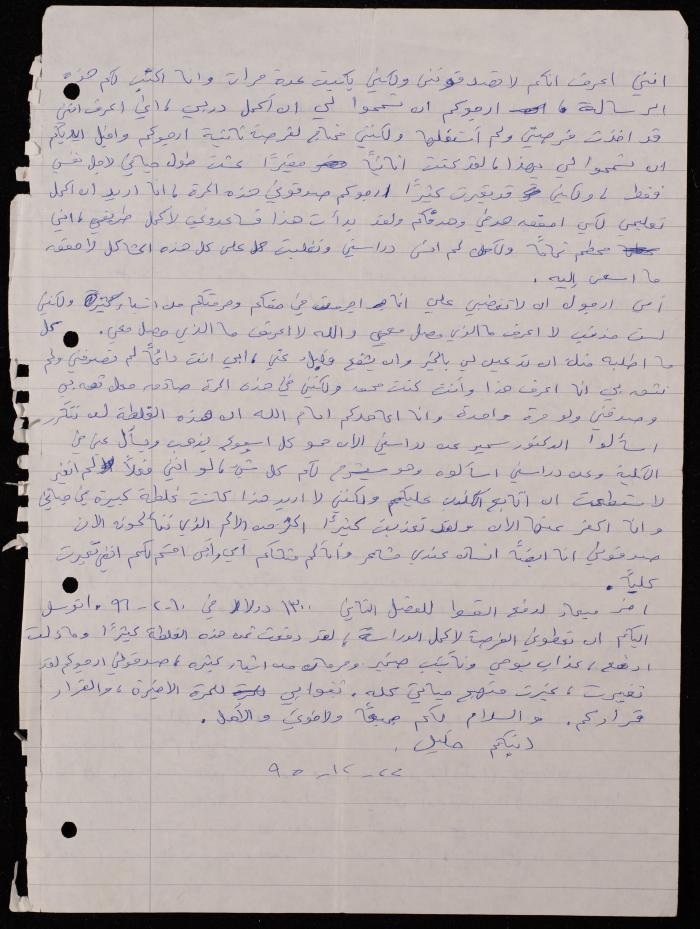 انني اعرف انكم لا تصدقونني ولكنني بكيت عدة مرات وانا اكتب لكم هذه
الرسالة، ارجوكم ان تسمحوا لي ان أكمل دربي، انني اعرف انني
قد اخذت فرصتي ولم أستغلها ولكنني محتاج لفرصة ثانية ارجوكم واقبل ايديكم
ان تسمحوا لي بهذا، لقد كنت انانياً حقيراً عشت طول حياتي لاجل نفسي
فقط، ولكنني قد تغيرت كثيراً ارجوكم صدقوني هذه المرة، انا اريد ان اكمل
تعليمي لكي احقق هدفي وهدفكم ولقد بدأت هذا فساعدوني لأكمل طريقي، انني
محطم تماماً ولكن لم انس دراستي وتغلبت على كل هذه المشاكل لاحقق
ما اسعى إليه.
أمي ارجوك ان لا تغضبي علي انا اجرمت في حقكم وحرمتكم من اشياء كثيرة ولكنني
لست مذنب لا اعرف ما الذي حصل معي والله لا اعرف ما الذي حصل معي. كل
ما اطلبه منك ان تدعين لي بالخير وان يشفع عني، ابي انت دائماً لم تصدقني ولم
تثق بي انا اعرف هذا وأنت كنت محق ولكنني في هذه المرة صادق معك ثق بي
وصدقني ولو مرة واحدة وانا اعاهدكم امام الله ان هذه الغلطة لن تتكرر
اسألوا الدكتور سمير عن دراستي الآن هو كل اسبوع يذهب ويسأل عني في
الكلية وعن دراستي اسألوه وهو سيشرح لكم كل شيء، لو انني فعلاً لم اتغير
لاستطعت ان اتابع الكذب عليكم ولكنني لا اريد هذا كانت غلطة كبيرة في حياتي
وانا اكفر عنها الآن ولقد تعذبت كثيراً اكثر من الالم الذي تعانونه الآن
صدقوني انا ايضاً انسان عندي مشاعر وأتألم مثلكم أمي وأبي اقسم لكم انني تغيرت
كلياً.
اخر ميعاد لدفع القسط للفصل الثاني ١٣٠٠ دولار في ١٠-٢-٩٦. اتوسل
اليكم ان تعطوني الفرصة لاكمل الدراسة، لقد دفعت ثمن هذه الغلطة كثيراً وما زلت
ادفع، عذاب يومي وتأنيب ضمير وحرمان من اشياء كثيرة، صدقوني ارجوكم لقد
تغيرت، غيرت منهج حياتي كله. ثقوا بي للمرة الاخيرة، والقرار
قراركم. والسلام لكم جميعاً ولاخوتي والأهل.
ابنكم خليل.
٢٢-١٢-٩٥